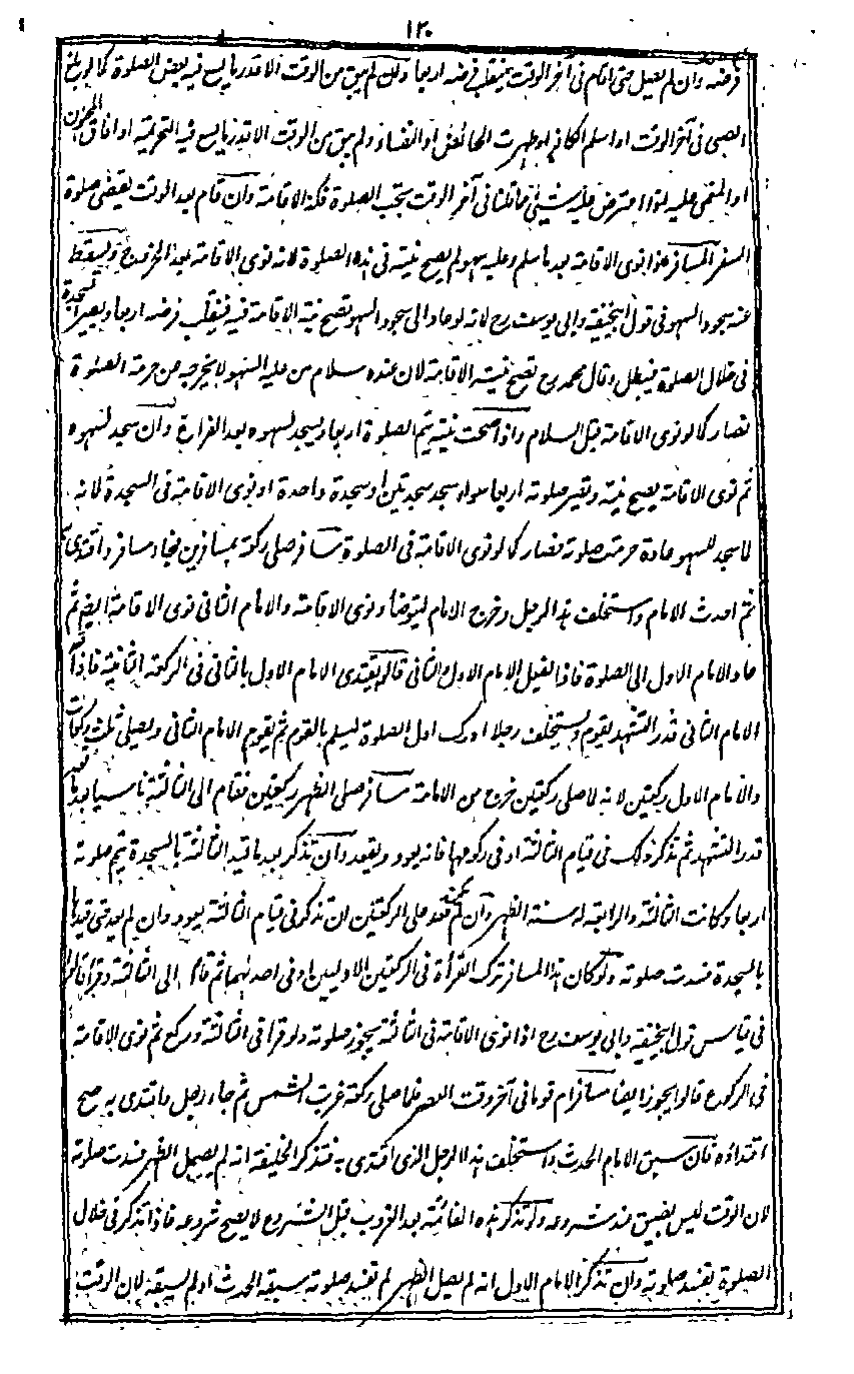 ١٢٠
فرضه وان لم يصل حتى اقام فى آخر الوقت ينقلب فرضه اربعا وان لم يبق من الوقت الا قدر ما يسع فيه بعض الصلوة كما لو بلغ
الصبى فى آخر الوقت او اسلم الكافر او طهرت الحائض او النفساء ولم يبق من الوقت الا قدر ما يسع فيه التحريمة او افاق المجنون
او المغمى عليه لو اعترض عليه شئ مما قلنا فى آخر الوقت يجب الصلوة فكذ الاقامة وان اقام بعد الوقت يقضى صلوة
السفر المسافر اذا نوى الاقامة بعد ما سلم وعليه سهو لم يصح نيته فى هذه الصلوة لانه نوى الاقامة بعد الخروج ويسقط
عنه سجود السهو فى قول ابيحنيفة وابى يوسف رح لانه لو عاد الى سجود السهو تصح نية الاقامة فيه فينقلب فرضه اربعا ويصير السجدة
فى خلال الصلوة فيبطل وقال محمد رح تصح نيته الاقامة لان عنده سلام من عليه السهو لا يخرجه من حرمة الصلوة
فصار كما لو نوى الاقامة قبل السلام واذا صحت نيته يتم الصلوة اربعا ويسجد لسهوه بعد الفراغ وان سجد لسهوه
ثم نوى الاقامة يصح نيته وتغير صلوته اربعا سواء سجد سجدتين او سجدة واحدة او نوى الاقامة فى السجدة لانه
لما سجد للسهو عادة حرمت صلوته فصار كما لو نوى الاقامة فى الصلوة مسافر صلى ركعة بمسافرين فجاء مسافر واقتدى به
ثم احدث الامام واستخلف هذا الرجل وخرج الامام ليتوضأ ونوى الاقامة والامام الثانى نوى الاقامة ايضا ثم
عاد الامام الاول الى الصلوة فاذا يفعل الامام الاول والثانى قالوا يقتدى الامام الاول بالثانى فى الركعة الثانية فاذا
الامام الثانى قدر التشهد يقوم ويستخلف رجلا ادرك اول الصلوة ليسلم بالقوم ثم يقوم الامام الثانى ويصلى ثلث ركعات
والامام الاول ركعتين لانه لما صلى ركعتين خرج من الامامة مسافر صلى الظهر ركعتين فقام الى الثالثة ناسيا بعد ما قعد
قدر التشهد ثم تذكر ذلك فى قيام الثالثة او فى ركوعها فانه يعود ويقعد وان تذكر بعد ما قيد الثالثة بالسجدة يتم صلوته
اربعا وكانت الثالثة والرابعة له سنة الظهر وان لم يكن قعد على الركعتين ان تذكر فى قيام الثالثة يعود وان لم يعد حتى قيدها
بالسجدة فسدت صلوته ولو كان هذا المسافر ترك القرأة فى الركعتين الاوليين او فى احدهما ثم قام الى الثالثة وقرأ قالوا
فى قياس قول ابيحنيفة وابى يوسف رح اذا نوى الاقامة فى الثالثة يجوز صلوته ولو قرأ فى الثالثة وركع ثم نوى الاقامة
فى الركوع قالوا يجوز ايضا مسافر ام قوما فى آخر وقت العصر فلما صلى ركعة غربت الشمس ثم جاء رجل واقتدى به صح
اقتداؤه فان سبق الامام الحدث واستخلف هذا الرجل الذى اقتدى به فتذكر الخليفة انه لم يصل الظهر فسدت صلوته
لان الوقت ليس بضيق عند شروعه ولو تذكر هذه الفائتة بعد الغروب قبل الشروع لا يصح شروعه فاذا تذكر فى خلال
الصلوة يفسد صلوته وان تذكر الامام الاول انه لم يصل الظهر لم تفسد صلوته سبقه الحدث او لم يسبقه لان الوقت